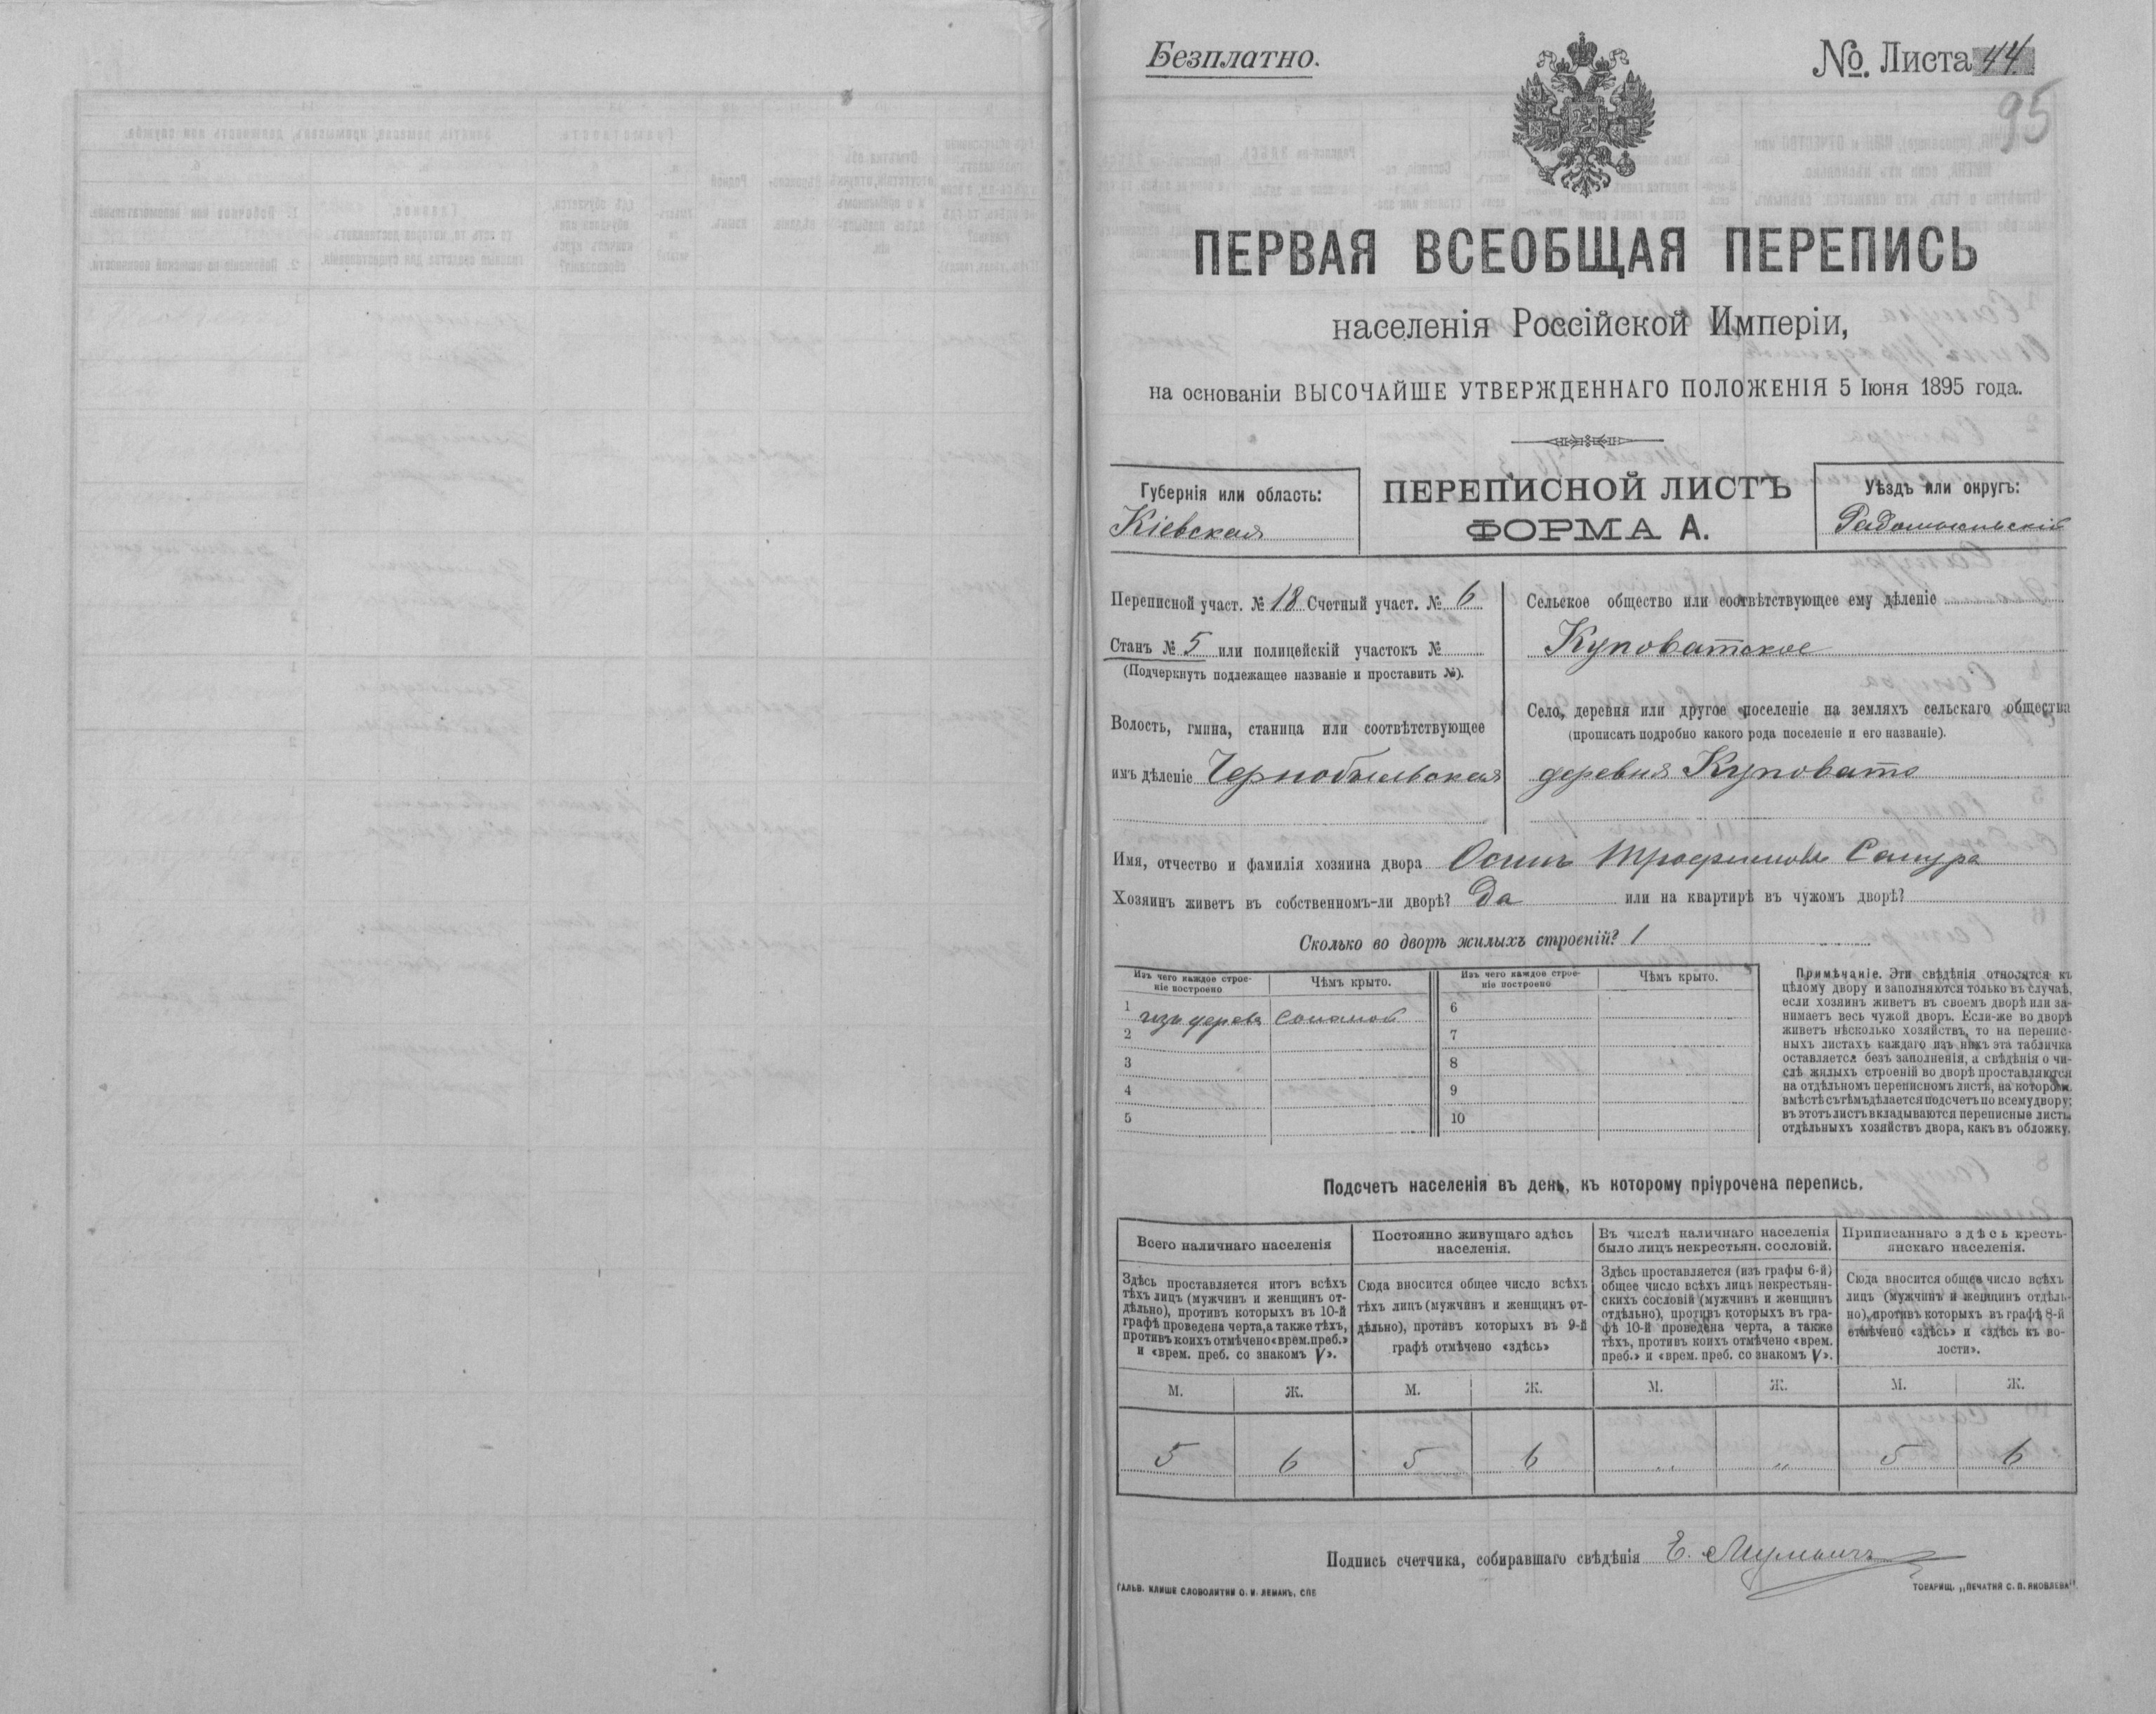 Безплатно.
№. Листа 44
95
ПЕРВАЯ ВСЕОБЩАЯ ПЕРЕПИСЬ
населенія Россійской Имперіи,
на основаніи ВЫСОЧАЙШЕ УТВЕРЖДЕННАГО ПОЛОЖЕНІЯ 5 Іюня 1895 года.
Губернія или область:
Кіевская
ПЕРЕПИСНОЙ ЛИСТЪ
ФОРМА А.
Уѣздъ или округъ:
Радомысльскій
Переписной участ. № 18 Счетный участ. № 6
Станъ № 5 или полицейскій участокъ №
(Подчеркнуть подлежащее названіе и проставить №).
Волость, гмина, станица или соотвѣтствующее
имъ дѣленіе Чернобыльская
Сельское общество или соотвѣтствующее ему дѣленіе
Куповатское
Село, деревня или другое поселеніе на земляхъ сельскаго общества
(прописать подробно какого рода поселеніе и его названіе).
деревня Куповато
Имя, отчество и фамилія хозяина двора Осипъ Трофимовъ Сапура
Хозяинъ живетъ въ собственномъ-ли дворѣ? Да или на квартирѣ въ чужомъ дворѣ?
Сколько во дворѣ жилыхъ строеній? 1
Изъ чего каждое строе-
ніе построено
Чѣмъ крыто.
Изъ чего каждое строе-
ніе построено
Чѣмъ крыто.
1 изъ дерева соломой
2
3
4
5
6
7
8
9
10
Примѣчаніе. Эти свѣдѣнія относятся къ
цѣлому двору и заполняются только въ случаѣ,
если хозяинъ живетъ въ своемъ дворѣ или за-
нимаетъ весь чужой дворъ. Если-же во дворѣ
живетъ нѣсколько хозяйствъ, то на перепис-
ныхъ листахъ каждаго изъ нихъ эта табличка
оставляется безъ заполненія, а свѣдѣнія о чи-
слѣ жилыхъ строеній во дворѣ проставляются
на отдѣльномъ переписномъ листѣ, на которомъ
вмѣстѣ съ тѣмъ дѣлается подсчетъ по всему двору;
въ этотъ листъ вкладываются переписные листы
отдѣльныхъ хозяйствъ двора, какъ въ обложку.
Подсчетъ населенія въ день, къ которому пріурочена перепись.
Всего наличнаго населенія
Здѣсь проставляется итогъ всѣхъ
тѣхъ лицъ (мужчинъ и женщинъ от-
дѣльно), противъ которыхъ въ 10-й
графѣ проведена черта, а также тѣхъ,
противъ коихъ отмѣчено «врем. преб.»
и «врем. преб. со знакомъ V».
Постоянно живущаго здѣсь
населенія.
Сюда вносится общее число всѣхъ
тѣхъ лицъ (мужчинъ и женщинъ от-
дѣльно), противъ которыхъ въ 9-й
графѣ отмѣчено «здѣсь»
Въ числѣ наличнаго населенія
было лицъ некрестьян. сословій.
Здѣсь проставляется (изъ графы 6-й)
общее число всѣхъ лицъ некрестьян-
скихъ сословій (мужчинъ и женщинъ
отдѣльно), противъ которыхъ въ гра-
фѣ 10-й проведена черта, а также
тѣхъ, противъ коихъ отмѣчено «врем.
преб.» и «врем. преб. со знакомъ V».
Приписаннаго здѣсь кресть-
янскаго населенія.
Сюда вносится общее число всѣхъ
лицъ (мужчинъ и женщинъ отдѣль-
но), противъ которыхъ въ графѣ 8-й
отмѣчено «здѣсь» и «здѣсь къ во-
лости».
М. Ж. М. Ж. М. Ж. М. Ж.
5 6 5 6 „ „ 5 6
Подпись счетчика, собиравшаго свѣдѣнія Е.
ГАЛЬВ. КЛИШЕ СЛОВОЛИТНИ О. И. ЛЕМАНЪ, СПБ
ТОВАРИЩ. „ПЕЧАТНЯ С. П. ЯКОВЛЕВА"